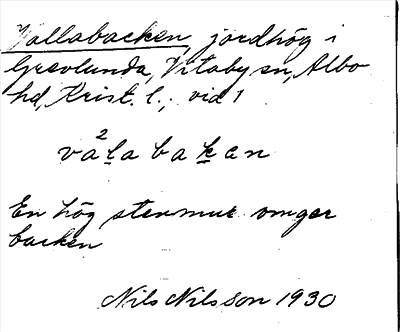 Vallabacken, jordhög i
Grevlunda, Vitaby sn, Albo
hd, Krist. l., vid 1
va²labakan
En hög stenmur omger
backen
Nils Nilsson 1930